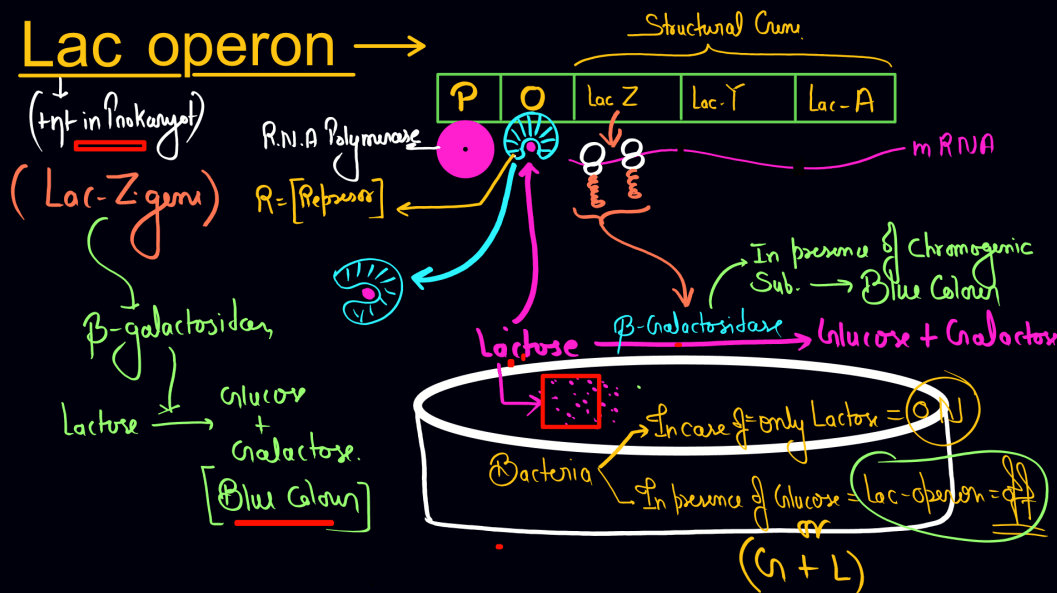 Lac operon
(+nt in Prokaryot)
(Lac-Z-gene)
β-galactosidase,
Lactose
Glucose
+
Galactose.
[Blue Colour]
Structural Gene.
P O Lac Z Lac-Y Lac-A
R.N.A Polymerase
R=[Represor]
mRNA
In presence of Chromogenic
Sub. → Blue Colour
β-Galactosidase
Lactose → Glucose + Galactose
Bacteria
In case of only Lactose = ON
In presence of Glucose = Lac-operon = off
or
(G + L)